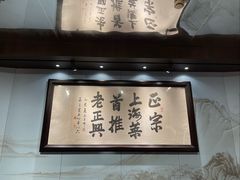 正宗
上海菜
首推
老正興